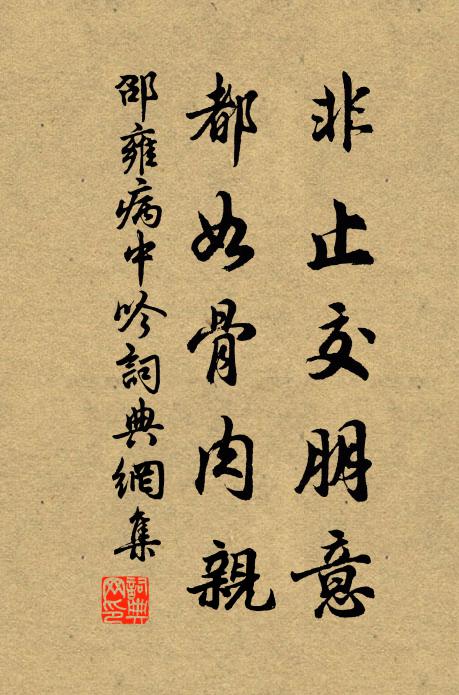 非止交朋意
都如骨肉親
邵雍病中吟詞典網集
詞典
网印